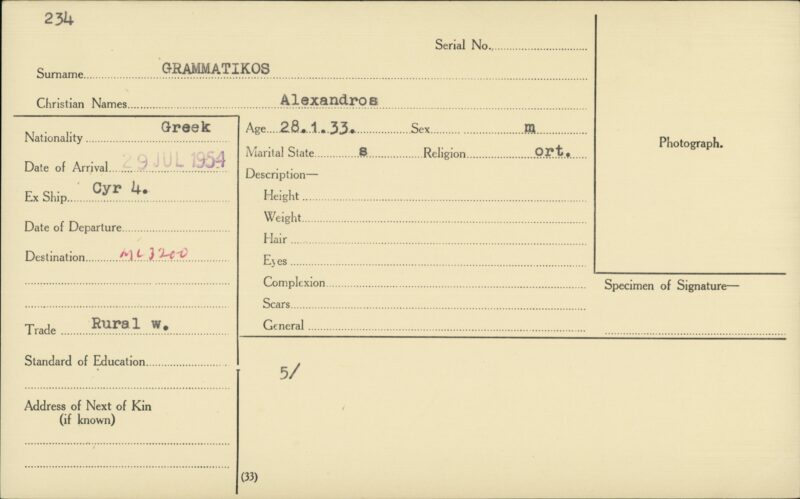 234
Serial No.
Surname GRAMMATIKOS
Christian Names Alexandros
Nationality Greek
Date of Arrival 29 JUL 1954
Ex Ship Cyr 4.
Date of Departure
Destination MC 3200
Trade Rural w.
Standard of Education
Address of Next of Kin
(if known)
Age 28.1.33. Sex m
Marital State s Religion ort.
Description—
Height
Weight
Hair
Eyes
Complexion
Scars
General
Photograph.
Specimen of Signature—
5/
(33)